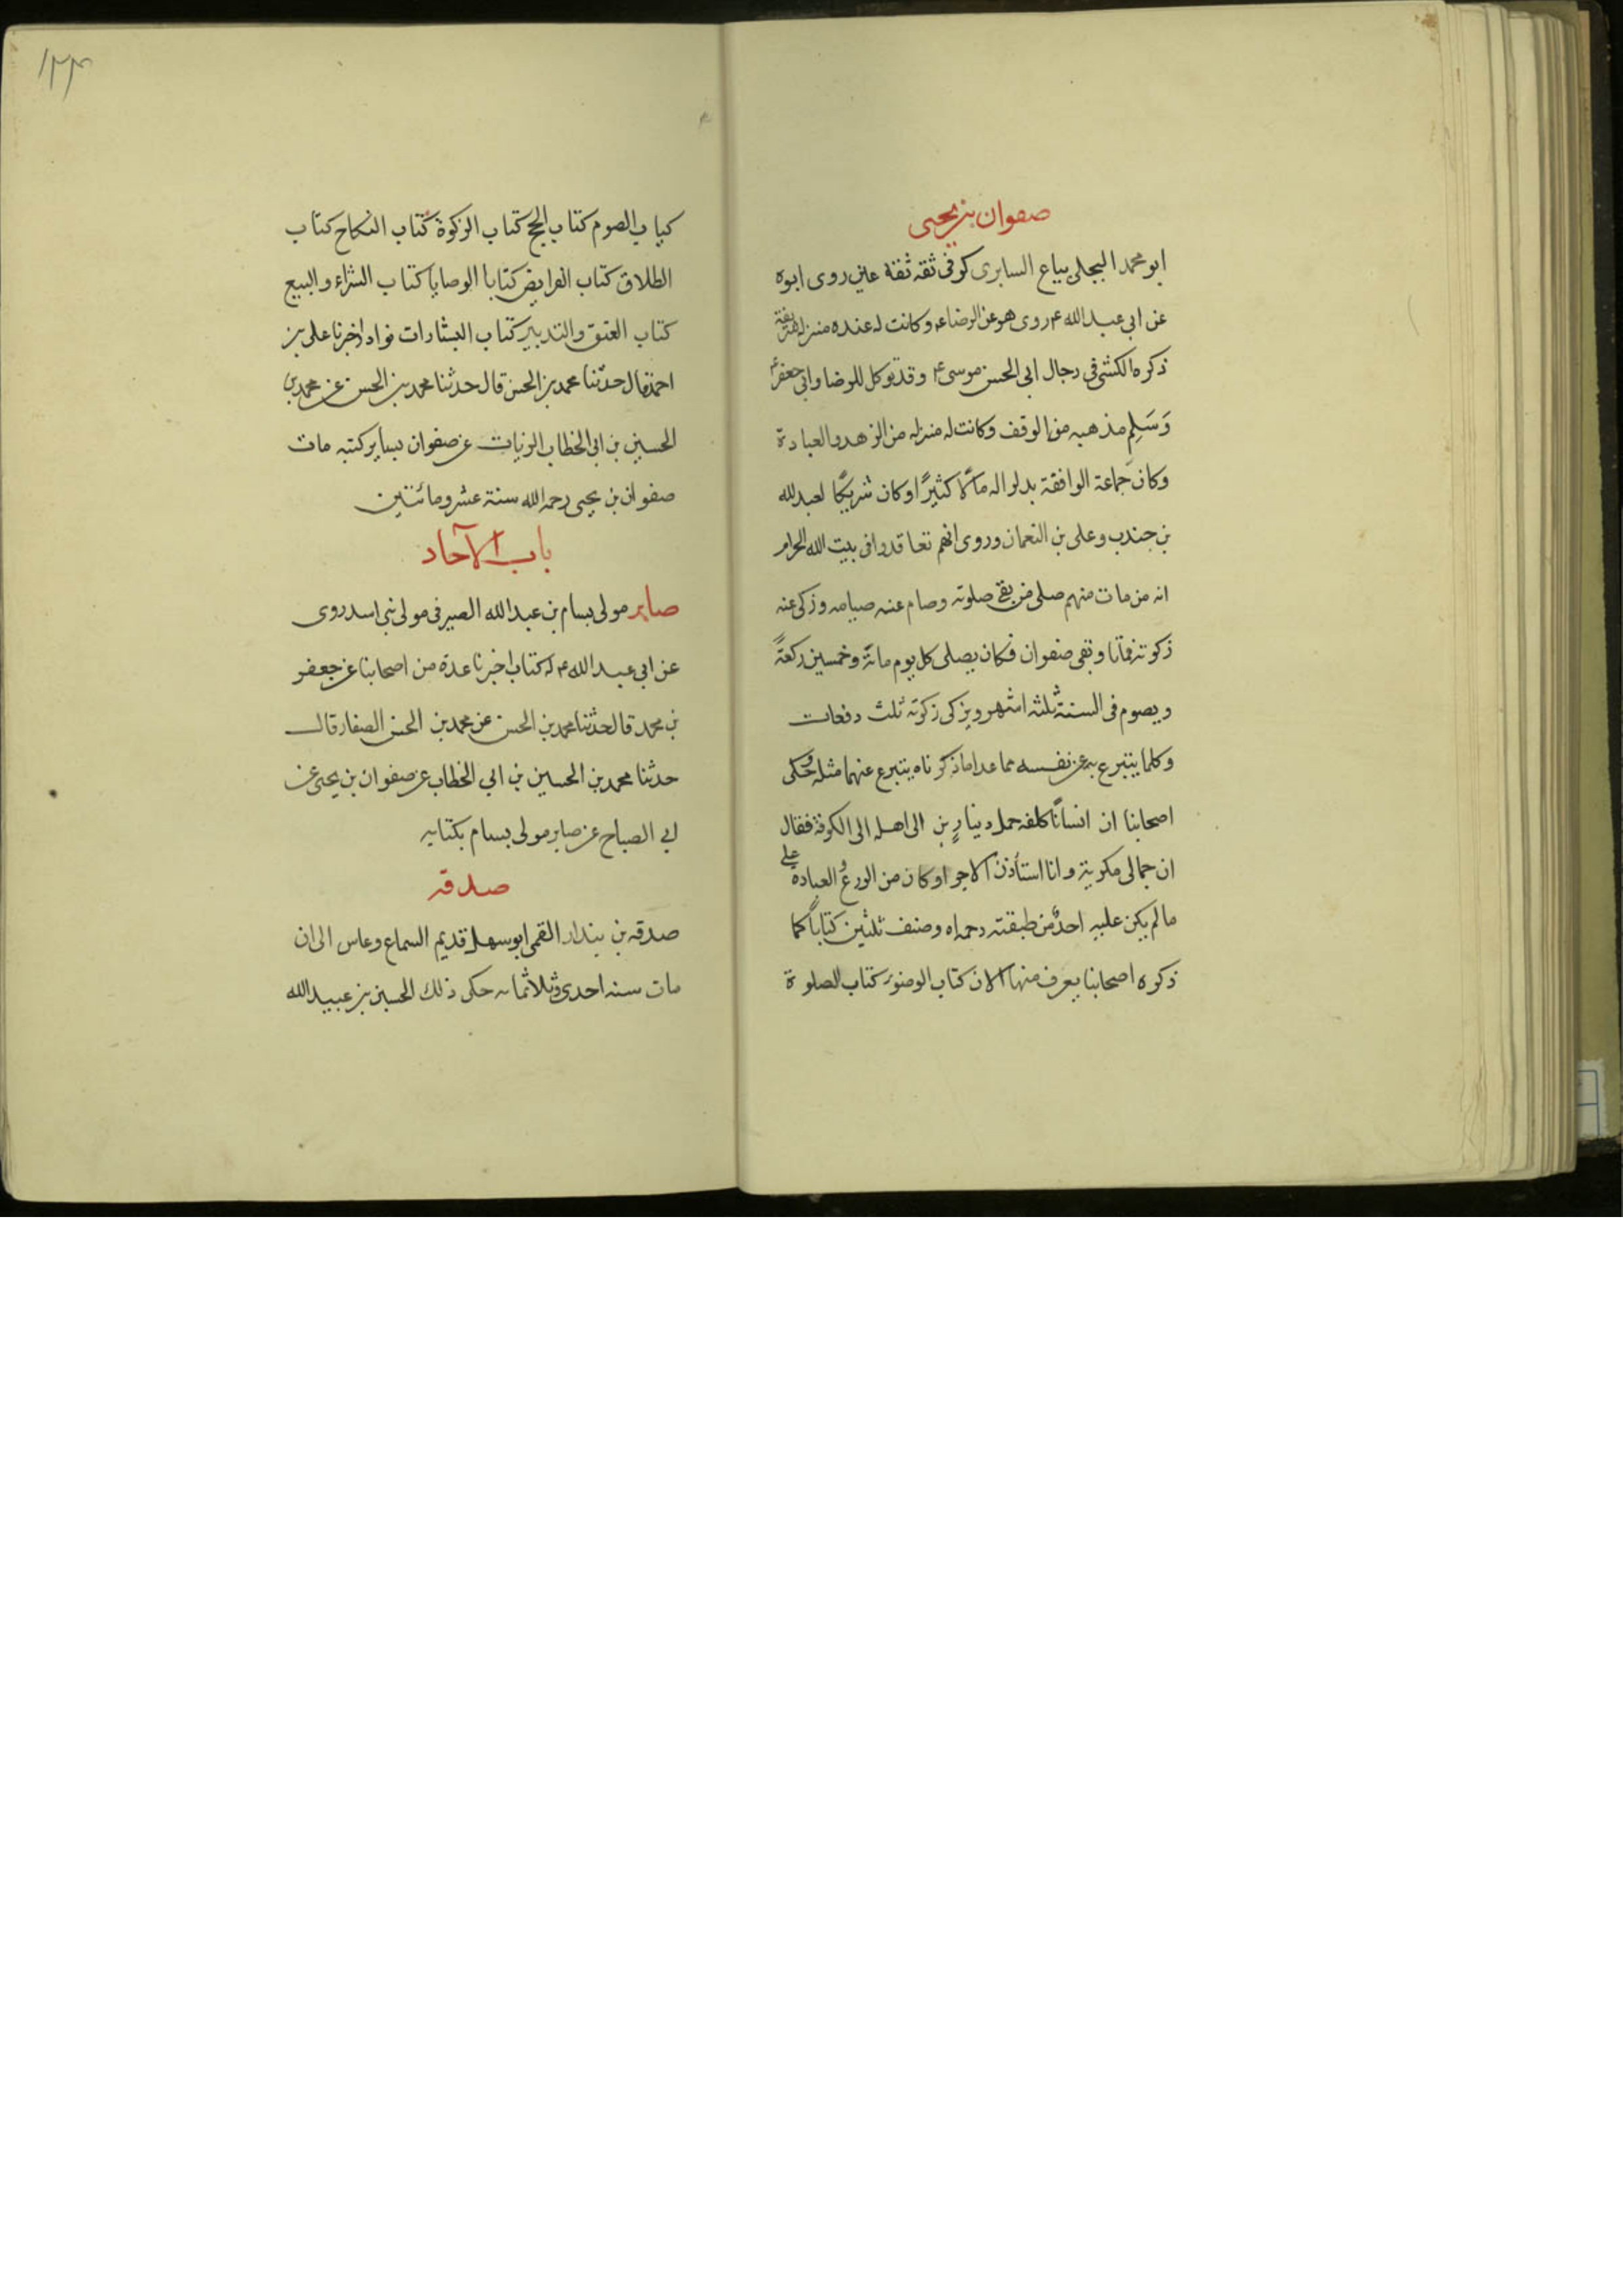 صفوان بن يحيى
ابو محمد البجلي بياع السابرى كوفى ثقه ثقة عين روى ابوه
عن ابى عبد الله ع روى هو عن الرضا ع وكانت له عنده منزلة شريفة
ذكره الكشى فى رجال ابى الحسن موسى ع وقد توكل للرضا وابى جعفر ع
وَسَلِمَ مذهبه من الوقف وكانت له منزله من الزهد والعبادة
وكان جماعة الواقفة بدلوا له مالًا كثيرًا وكان شريكًا لعبد لله
بن جندب وعلى بن النعمان وروى انهم تعاقدوا فى بيت الله الحرام
انه من مات منهم صلى من بقى صلوته وصام عنه صيامه وزكى عنه
زكوته فماتا وبقى صفوان فكان يصلى كل يوم مائة وخمسين ركعةً
ويصوم فى السنة ثلثه اشهر ويزكى زكوته ثلث دفعات
وكلما يتبرع به عن نفسه مما عدا ما ذكرناه يتبرع عنهما مثله وحكى
اصحابنا ان انسانًا كلفه حمل دينارين الى اهله الى الكوفة فقال
ان جمالى مكرية وانا استأذن الاجرا وكان من الورع والعبادة على
ما لم يكن عليه احدٌ من طبقته رحمه اه وصنف ثلثين كتاباً كما
ذكره اصحابنا يعرف منها الان كتاب الوضوء كتاب الصلوة
١٣٣
كتاب الصوم كتاب الحج كتاب الزكوة كتاب النكاح كتاب
الطلاق كتاب الفرايض كتابا الوصايا كتاب الشراء والبيع
كتاب العتق والتدبير كتاب البشارات نوادر اخبرنا على بن
احمد قال حدّثنا محمد بن الحسن قال حدثنا محمد بن الحسن عن محمد بن
الحسين بن ابى الخطاب الزيات عن صفوان بساير كتبه مات
صفوان بن يحيى رحمه الله سنة عشر ومائتين
باب الآحاد
صابر مولى بسام بن عبد الله الصيرفى مولى بنى اسد روى
عن ابى عبد الله ع له كتاب اخبرنا عدة من اصحابنا عن جعفر
بن محمد قال حدثنا محمد بن الحسن عن محمد بن الحسن الصفار قال
حدثنا محمد بن الحسين بن ابى الخطاب عن صفوان بن يحيى عن
ابى الصباح عن صابر مولى بسام بكتابه
صدقه
صدقه بن بندار القمى ابو سهل قديم السماع وعاس الى ان
مات سنه احدى وثلاثمايه حكى ذلك الحسين بن عبيد الله